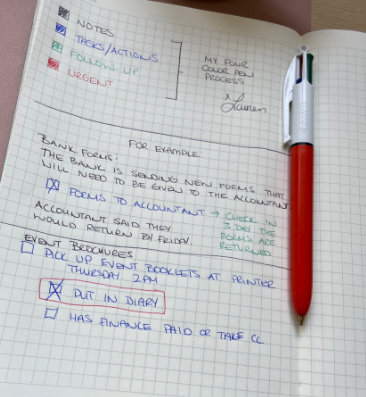 NOTES
TASKS/ACTIONS
FOLLOW UP
URGENT
MY FOUR
COLOR PEN
PROCESS
Lauren
FOR EXAMPLE
BANK FORMS:
THE BANK IS SENDING NEW FORMS THAT
WILL NEED TO BE GIVEN TO THE ACCOUNTANT
FORMS TO ACCOUNTANT → CHECK IN
3 DAY THE
FORMS ARE
RETURNED
ACCOUNTANT SAID THEY
WOULD RETURN BY FRIDAY.
EVENT BROCHURES
PICK UP EVENT BOOKLETS AT PRINTER
THURSDAY 2PM
PUT IN DIARY
HAS FINANCE PAID OR TAKE CC